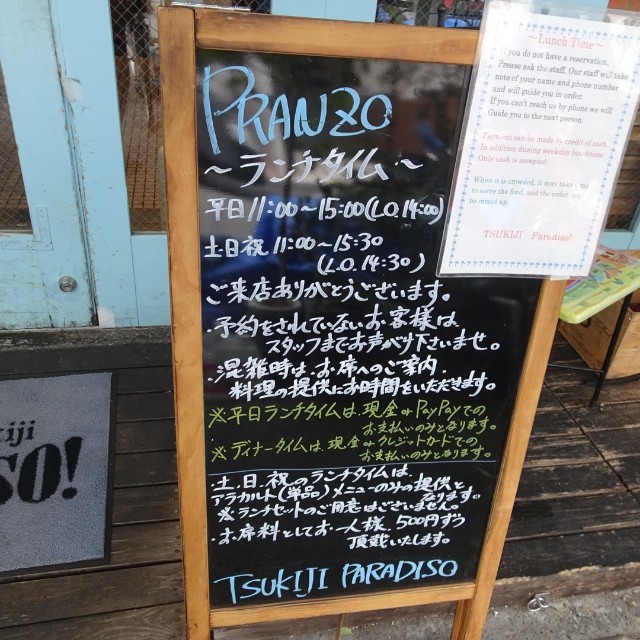 PRANZO
～ランチタイム～
平日11:00～15:00(L.O.14:00)
土日祝11:00～15:30
(L.O.14:30)
ご来店ありがとうございます。
・予約をされていないお客様は、
スタッフまでお声がけ下さいませ。
・混雑時は、お席へのご案内、
料理の提供にお時間をいただきます。
※平日ランチタイムは、現金orPayPayでの
お支払いのみとなります。
※ディナータイムは、現金orクレジットカードでの
お支払いのみとなります。
・土、日、祝のランチタイムは、
アラカルト(単品)メニューのみの提供と
なります。
※ランチセットのご用意はございません。
・お席料としてお一人様、500円ずつ
頂戴いたします。
TSUKIJI PARADISO
～Lunch Time～
If you do not have a reservation,
Please ask the staff. Our staff will take
note of your name and phone number
and will guide you in order.
If you can't reach us by phone we will
Guide you to the next person.
can be made by credit of cash.
In addition during weekday
Only cash is accepted.
When it is crowded, it may take time
to serve the food, and the order may
be mixed up.
TSUKIJI Paradiso!
kiji
SO!